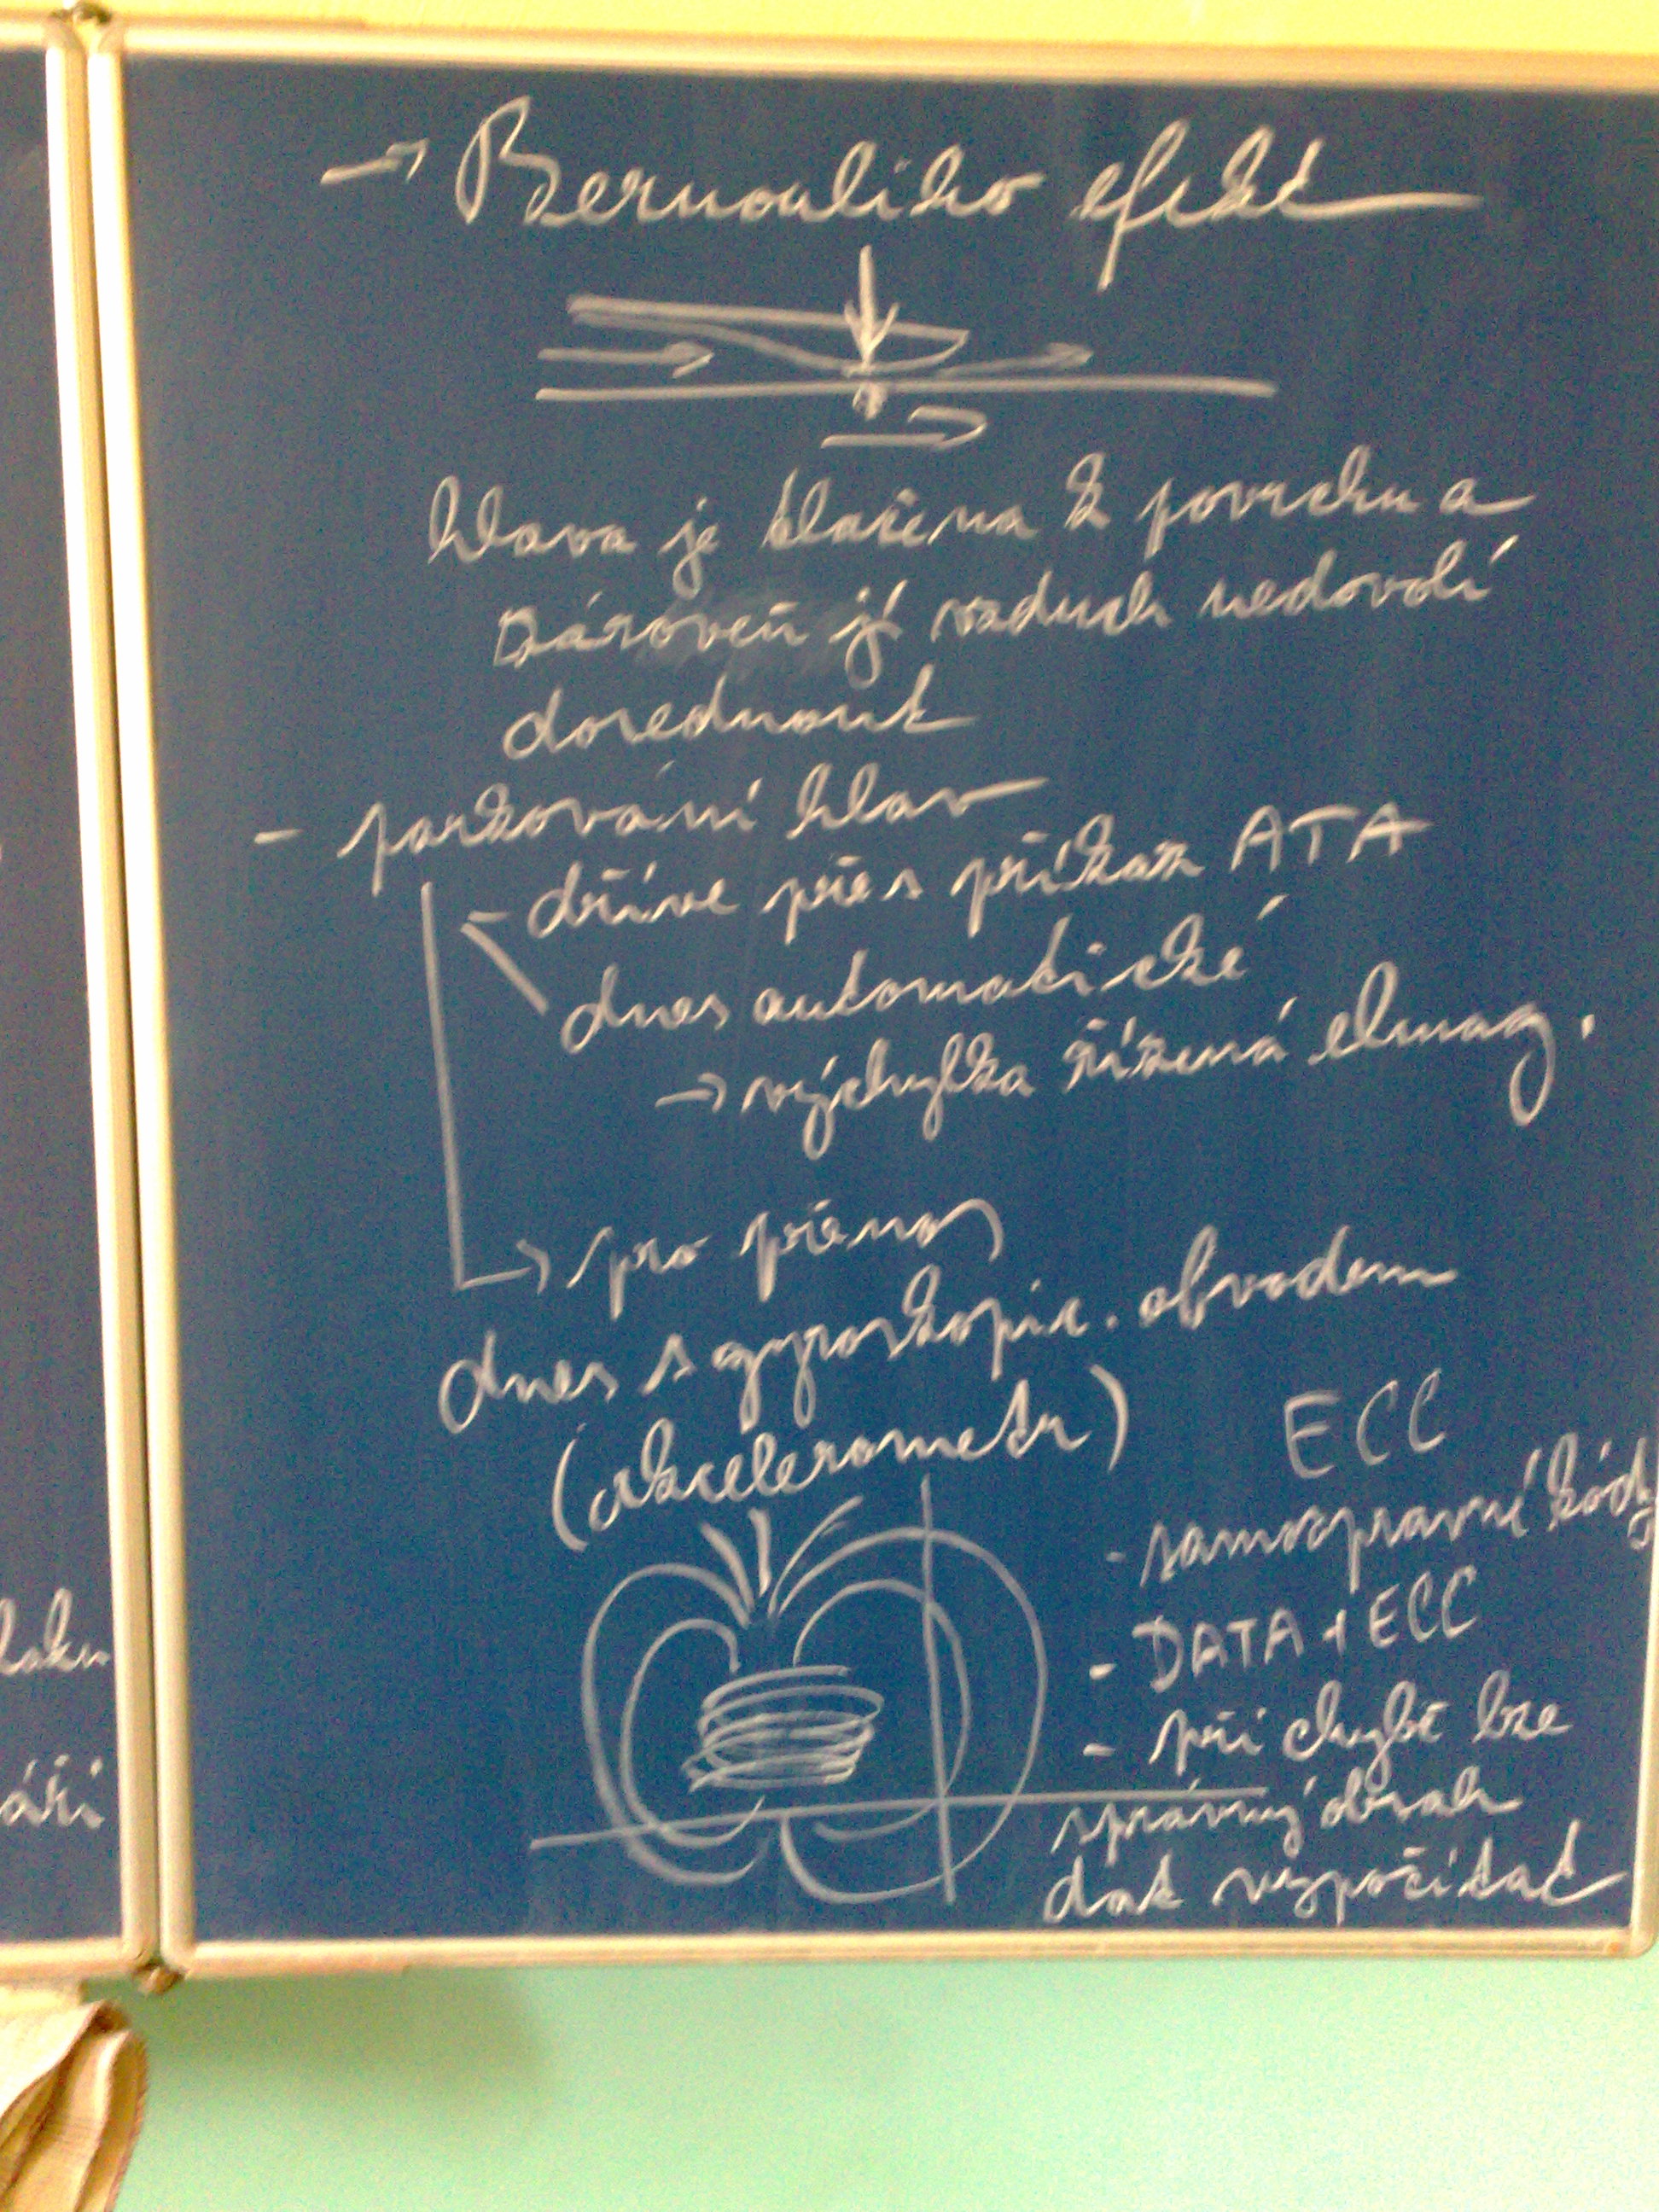 → Bernouliho efekt
hlava je tlačena k povrchu a
zároveň jí vzduch nedovolí
dosednout
- parkování hlav
- dříve přes příkaz ATA
dnes automatické
→ výchylka řízená elmag.
→ pro přenos
dnes s gyroskopic. obvodem
(akcelerometr)
ECC
- samoopravné kódy
- DATA + ECC
- při chybě lze
správný obsah
dat vypočítat